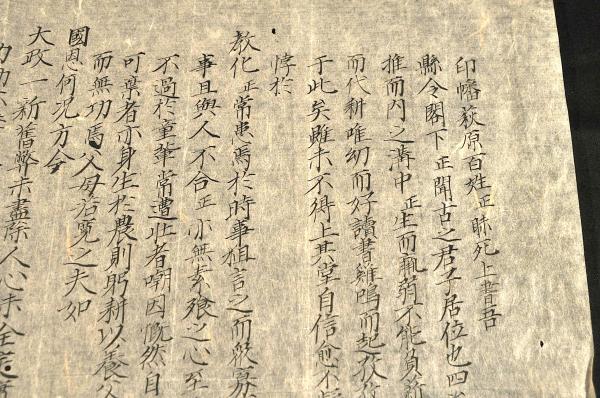 印幡荻原百姓正昧死上書吾
縣令閣下正聞古之君子居位也四
推而內之溝中正生而羸弱不能負薪
而代耕唯幼而好讀書雞鳴而起夜
于此矣雖未不得上其堂自信愈不
悖於
教化正常患焉於時事俎言之而
事且與人不合正亦無素餐之心至
不過於童輩常遭此者嘲因慨然自
可棄者亦身生於農則躬耕以養父
而無功焉父母若寬之夫如
國恩何况方今
大政一新舊弊未盡除人心未全定